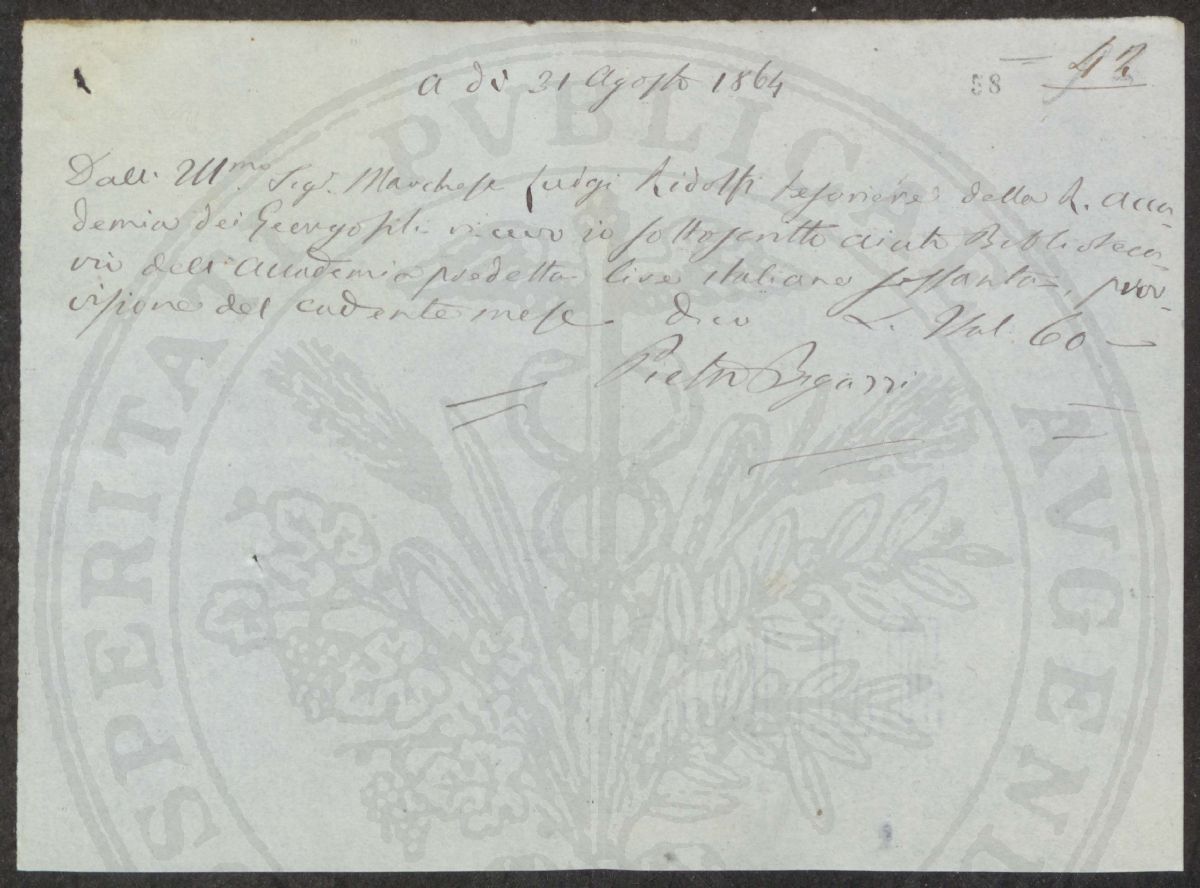 42
58
a dì 31 Agosto 1864
Dall' Ill.mo Sig.r Marchese Luigi Ridolfi Tesoriere della R. Acca-
demia dei Georgofili ricevo io sottoscritto aiuto Biblioteca-
rio dell' Accademia predetta lire italiane sessanta, prov-
visione del cadente mese dico L. Ital. 60 —
Pietro Bigazzi
SPERITATI PVBLICAE AVGEN